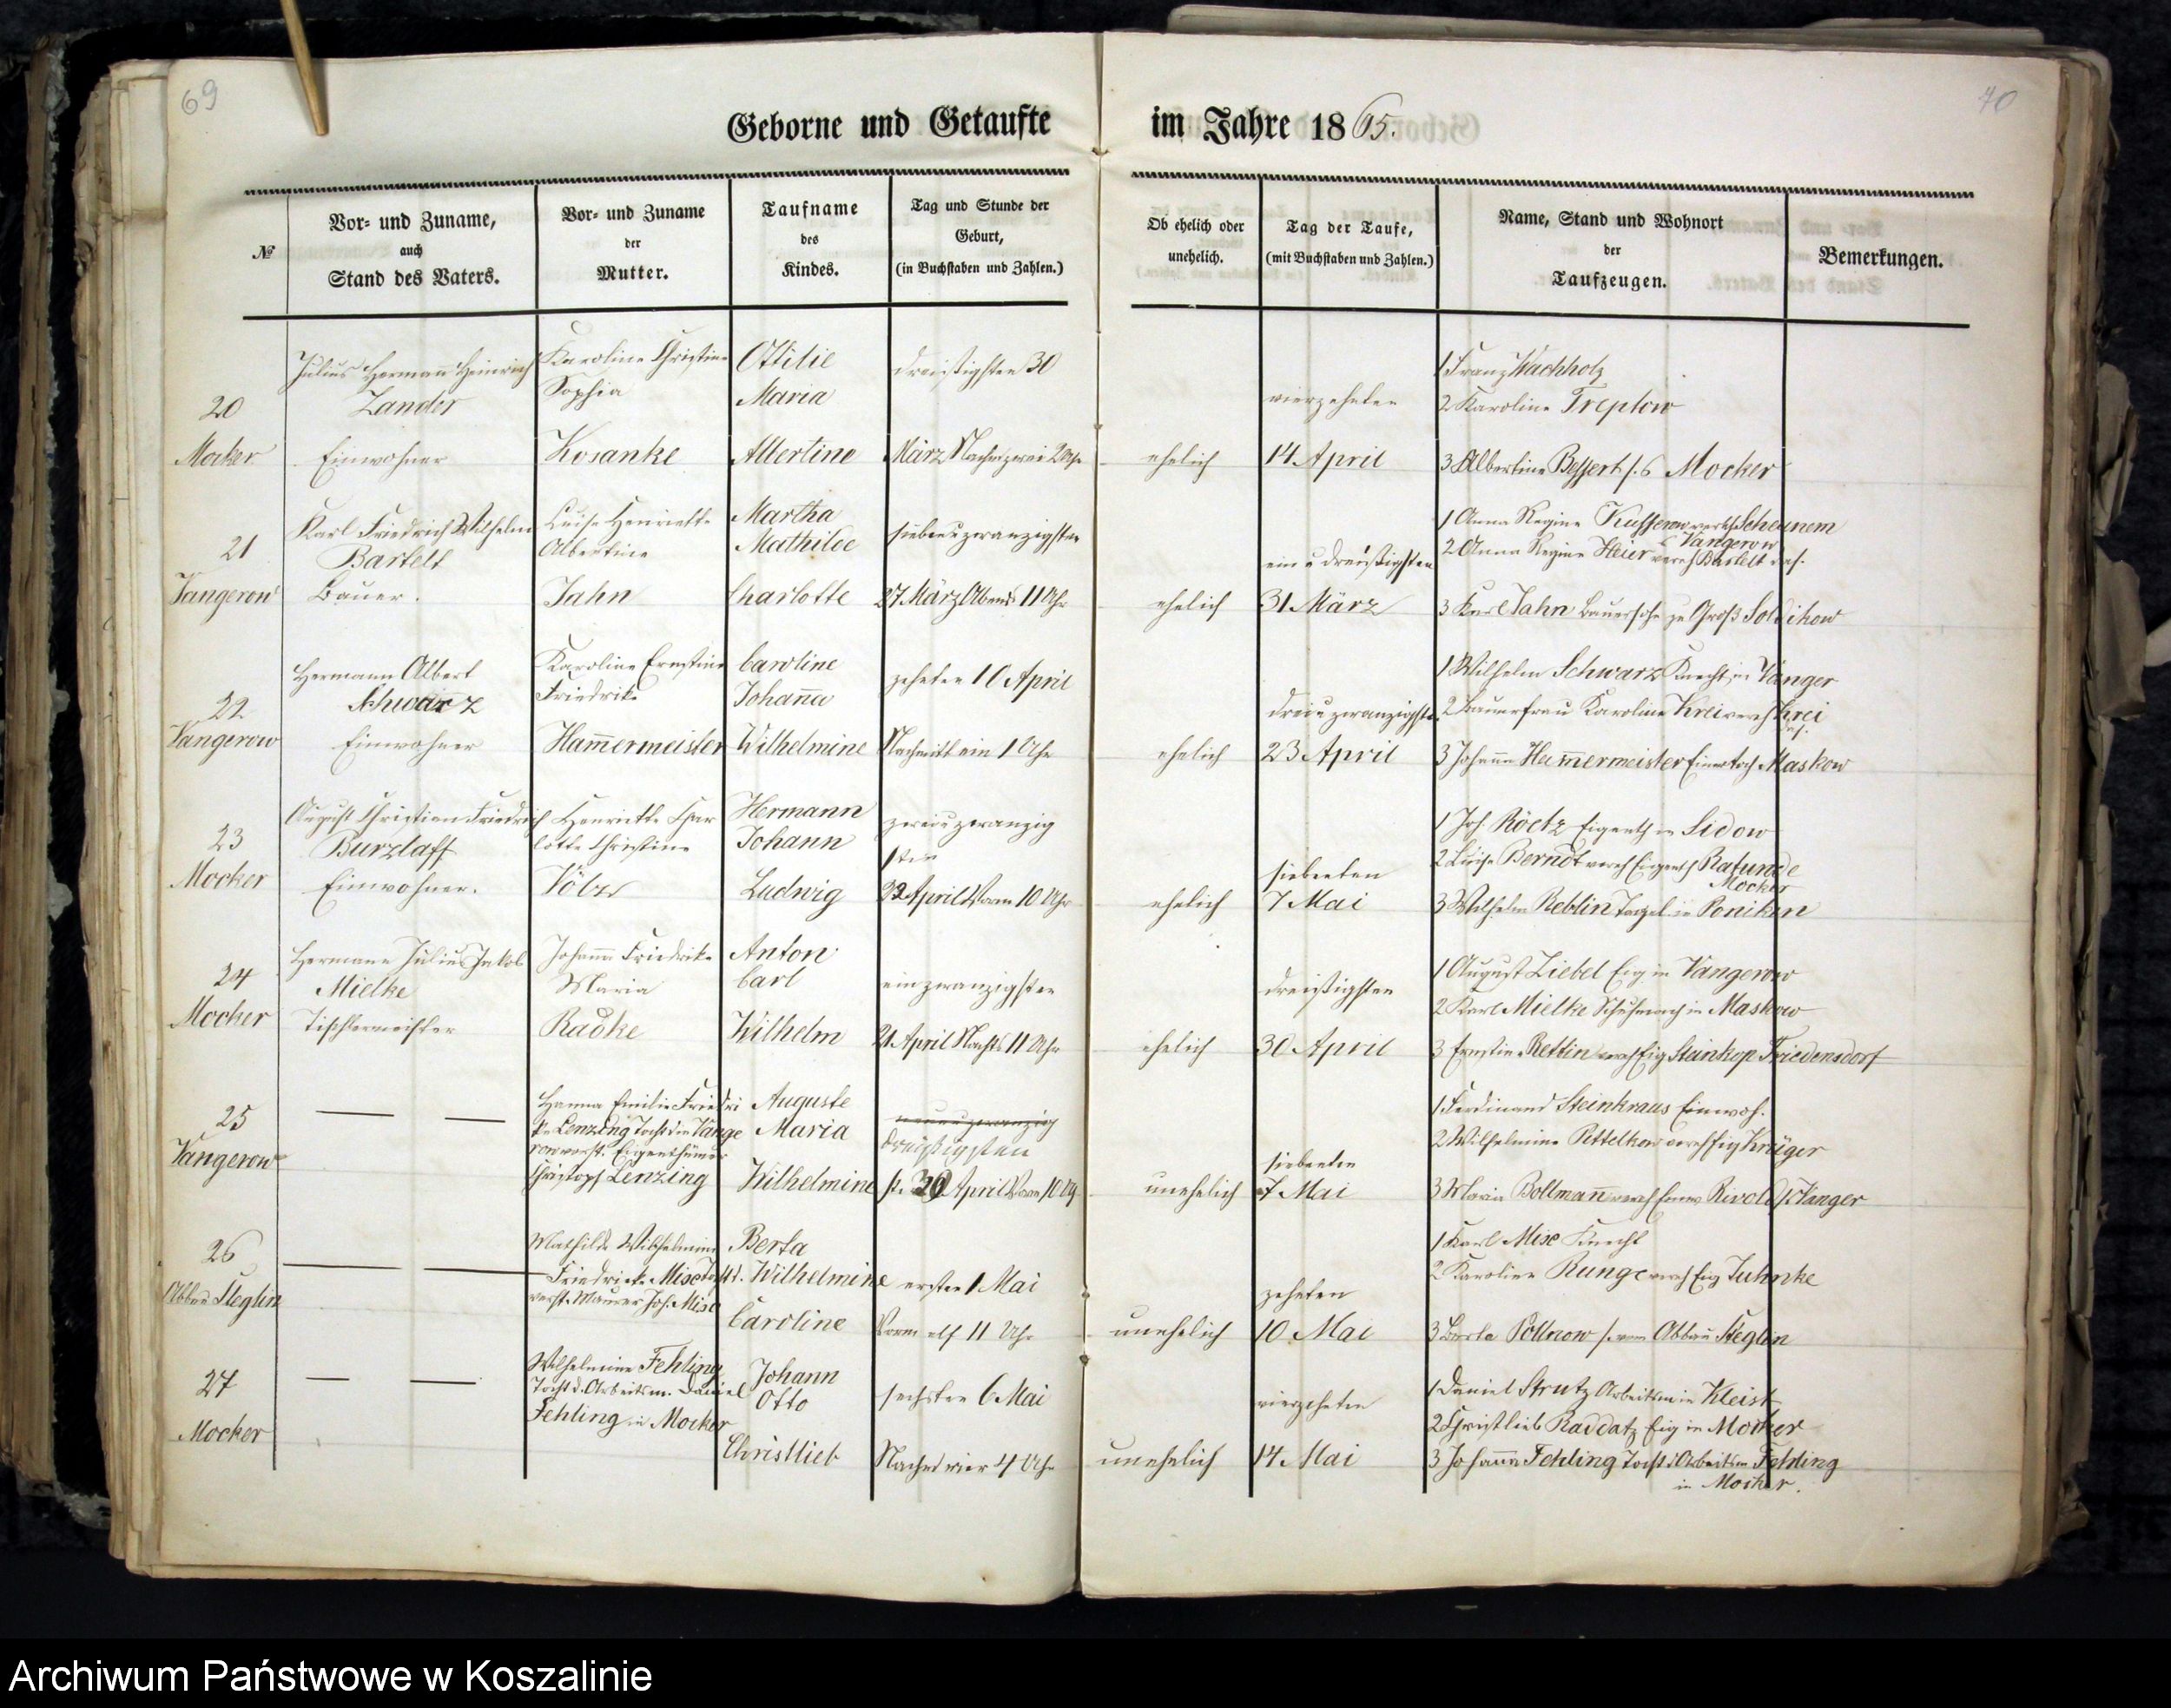 69
70
Geborne und Getaufte im Jahre 1865.
№
Vor- und Zuname,
auch
Stand des Vaters.
Vor- und Zuname
der
Mutter.
Taufname
des
Kindes.
Tag und Stunde der
Geburt,
(in Buchstaben und Zahlen.)
Ob ehelich oder
unehelich.
Tag der Taufe,
(mit Buchstaben und Zahlen.)
Name, Stand und Wohnort
der
Taufzeugen.
Bemerkungen.
20
Mocker
Julius Hermann Heinrich
Zander
Einwohner
Karoline Christine
Sophia
Kosanke
Ottilie
Maria
Albertine
dreißigsten 30
März Nachm zwei 2 Uhr
ehelich
vierzehnten
14 April
1 Franz Wachholz
2 Karoline Treptow
3 Albertine Beffert Mocker
21
Vangerow
Karl Friedrich Wilhelm
Bartelt
Bauer.
Luise Henriette
Albertine
Jahn
Martha
Mathilde
Charlotte
siebenuzwanzigsten
27 März Abends 11 Uhr
ehelich
ein u dreißigsten
31 März
1 Anna Regine Kufferow Scheunem
Vangerow
2 Anna Regine Heier vereh Bartelt das.
3 Karl Jahn Bauersohn zu Groß Soltikow
22
Vangerow
Hermann Albert
Schwarz
Einwohner
Karoline Ernstine
Friedrike
Ham̄ermeister
Caroline
Johan̄a
Wilhelmine
zehnten 10 April
Nachmitt ein 1 Uhr
ehelich
dreiuzwanzigste
23 April
1 Wilhelm Schwarz Knecht in Vanger
2 Bauerfrau Karoline Krei vereh Krei
das.
3 Johann Ham̄ermeister Maskow
23
Mocker
August Christian Friedrich
Burzlaff
Einwohner.
Henriette Char
lotte Christine
Völz
Hermann
Johann
Ludwig
zweiuzwanzig
sten
22 April Vorm 10 Uhr
ehelich
siebenten
7 Mai
1 Joh. Röctz Eigenth in Sidow
2 Luise Berndt vereh Eigenth Ratunde
Mocker
3 Wilhelm Reblin in Poniken
24
Mocker
Hermann Julius Jakob
Mielke
Tischlermeister
Johan̄a Friedrike
Maria
Radke
Anton
Carl
Wilhelm
einzwanzigsten
21 April Nachts 11 Uhr
ehelich
dreißigsten
30 April
1 August Ziebel Eig in Vangerow
2 Karl Mielke Schuhmach in Maskow
3 Ernstine Rettin vereh Eig Steinkop Friedensdorf
25
Vangerow
Hanna Emilie Friedri
ke Lenzing Tocht d in Vange
row verst. Eigenthümer
Christoph Lenzing
Auguste
Maria
Wilhelmine
neunuzwanzig
dreißigsten
30 April Vorm 10 Uh
unehelich
siebenten
7 Mai
1 Ferdinand Steinkraus Einwoh.
2 Wilhelmine Pettelkow vereh Eig Krüger
3 Maria Bollman̄ vereh Rivold Vanger
26
Abbau Steglin
Mathilde Wilhelmine
Friedrieke Mise Tocht d.
verst. Maurer Joh. Mise
Berta
Wilhelmine
Caroline
ersten 1 Mai
Vorm elf 11 Uhr
unehelich
zehnten
10 Mai
1 Karl Mise Knecht
2 Karoline Runge vereh Eig Juhnke
3 Berta Pollnow vom Abbau Steglin
27
Mocker
Wilhelmine Fehling
Tocht d. Arbeitsm. Daniel
Fehling in Mocker
Johann
Otto
Christlieb
sechsten 6 Mai
Nachm vier 4 Uhr
unehelich
vierzehnten
14 Mai
1 Daniel Strutz Arbeitsm in Kleist
2 Christlieb Raddatz Eig in Mocker
3 Johanna Fehling Tocht d Arbeitsm Fehling
in Mocker.
Archiwum Państwowe w Koszalinie